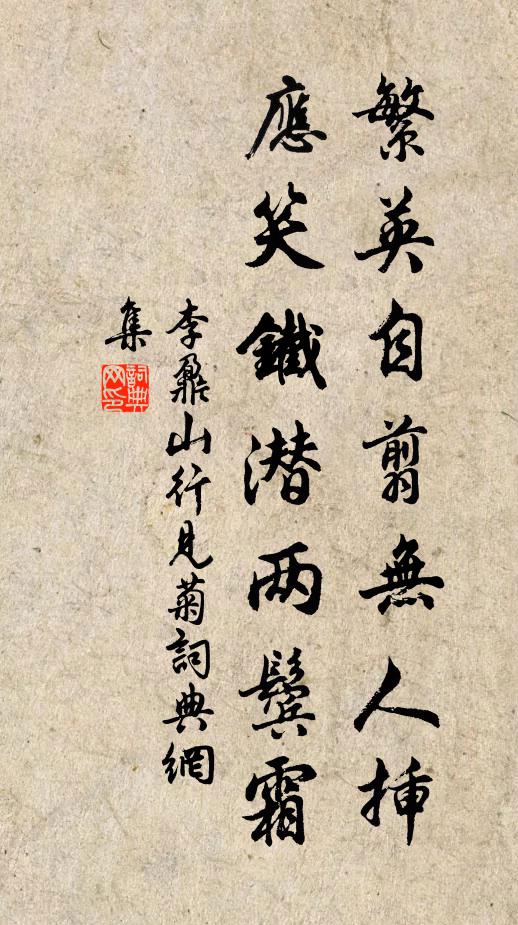 繁英自翦無人揷
應笑鐵潜两鬢霜
李鼐山行見菊詞典網
集
詞典
网印